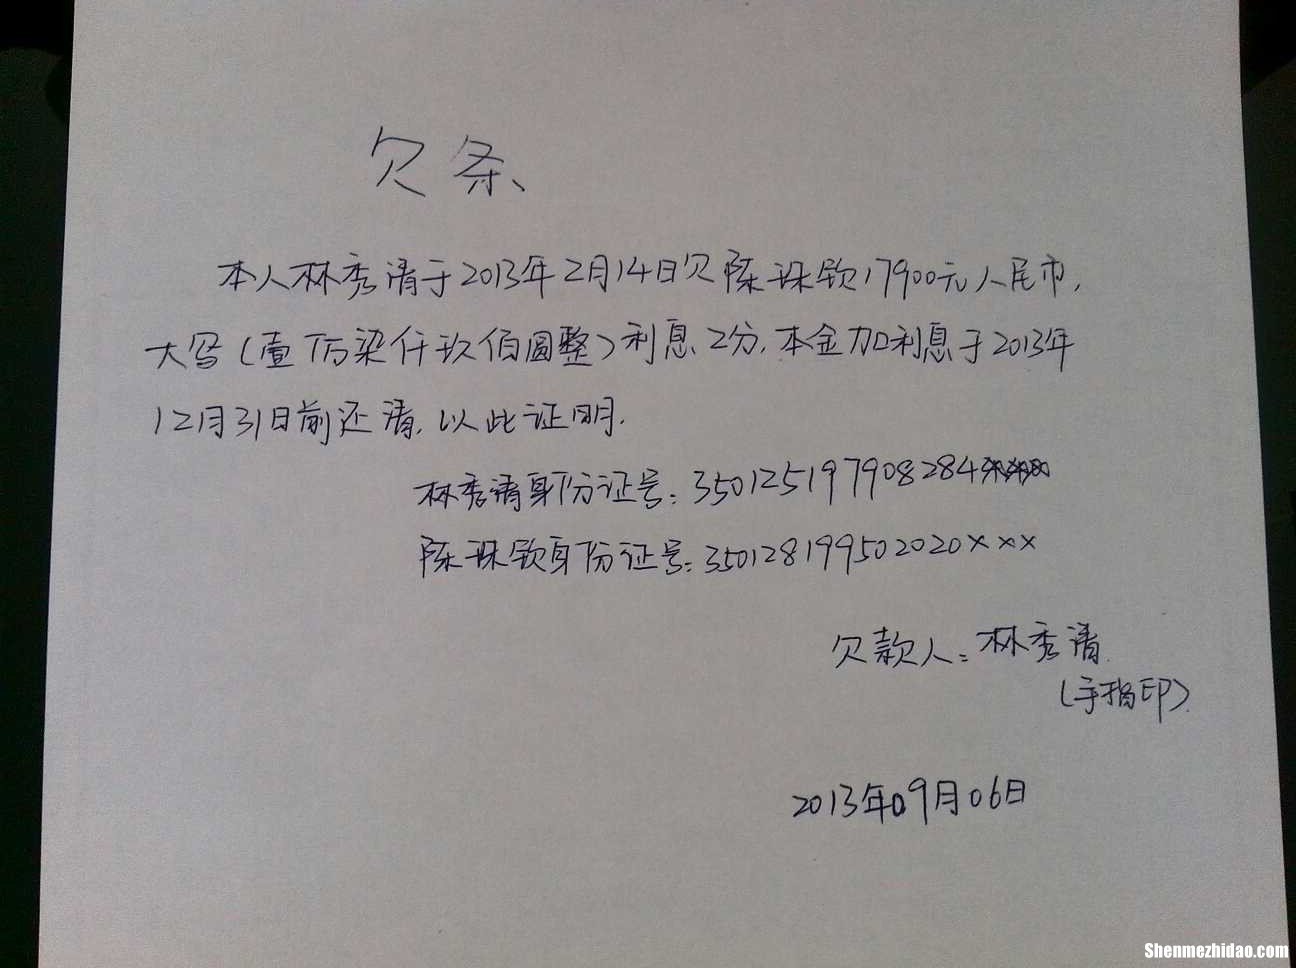 欠条、
本人林秀清于2013年2月14日欠陈珠钦17900元人民币，
大写（壹仟染仟玖佰圆整）利息2分，本金加利息于2013年
12月31日前还清，以此证明.
林秀清身份证号：350125197908284××××
陈珠钦身份证号：350128199502020×××
欠款人：林秀清
（手指印）
2013年09月06日
Shenmezhidao.com